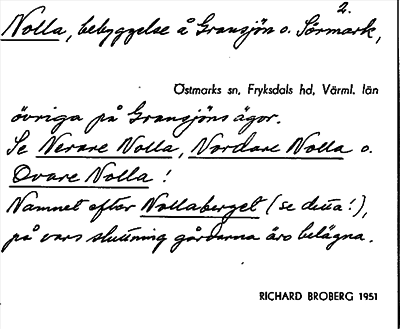 2.
Nolla, bebyggelse å Gransjön o. Sörmark,
Östmarks sn, Fryksdals hd, Värml. län
övriga på Gransjöns ägor.
Se Nerare Nolla, Nordare Nolla o.
Ovare Nolla!
Namnet efter Nollaberget (se detta!),
på vars sluttning gårdarna äro belägna.
RICHARD BROBERG 1951